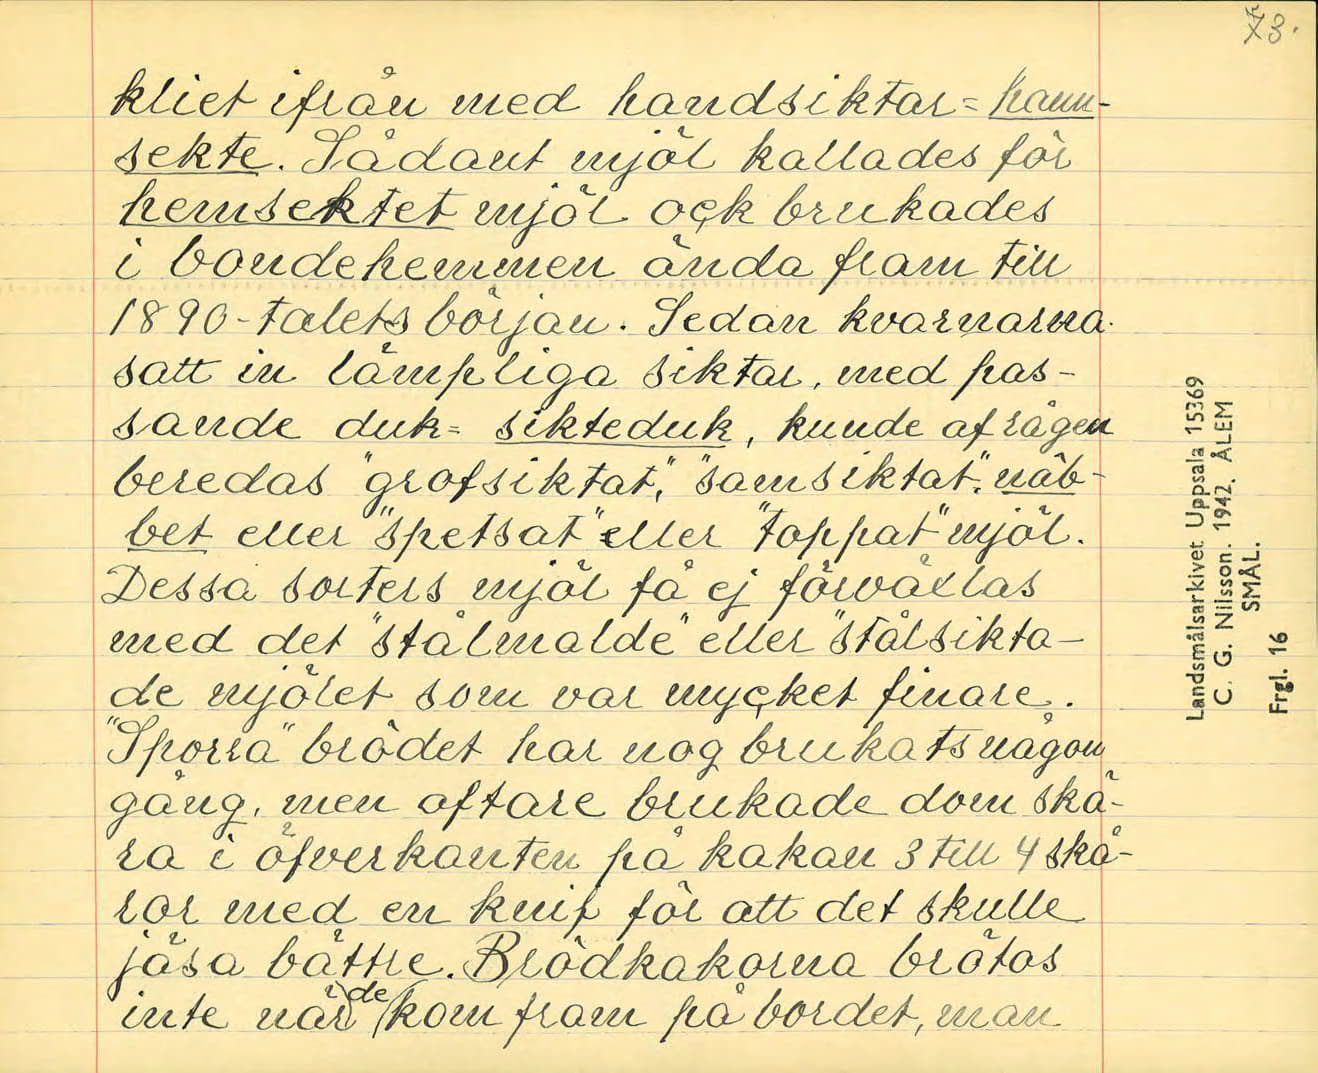 73.
kliet ifrån med handsiktar = hann-
sekte. Sådant mjöl kallades för
hemsektet mjöl ock brukades
i bondehemmen ända fram till
1890-talets början. Sedan kvarnarna
satt in lämpliga siktar, med pas-
sande duk = sikteduk, kunde af rågen
beredas "grofsiktat", "samsiktat", näb-
bet eller "spetsat" eller "toppat" mjöl.
Dessa sorters mjöl få ej förväxlas
med det "stålmalde" eller "stålsikta-
de mjölet som var mycket finare.
"Sporra" brödet har nog brukats någon
gång, men oftare brukade dom skä-
ra i öfverkanten på kakan 3 till 4 skå-
ror med en knif för att det skulle
jäsa bättre. Brödkakorna brötos
inte när de kom fram på bordet, man
Landsmålsarkivet Uppsala 15369
C. G. Nilsson. 1942. ÅLEM
SMÅL.
Frgl. 16